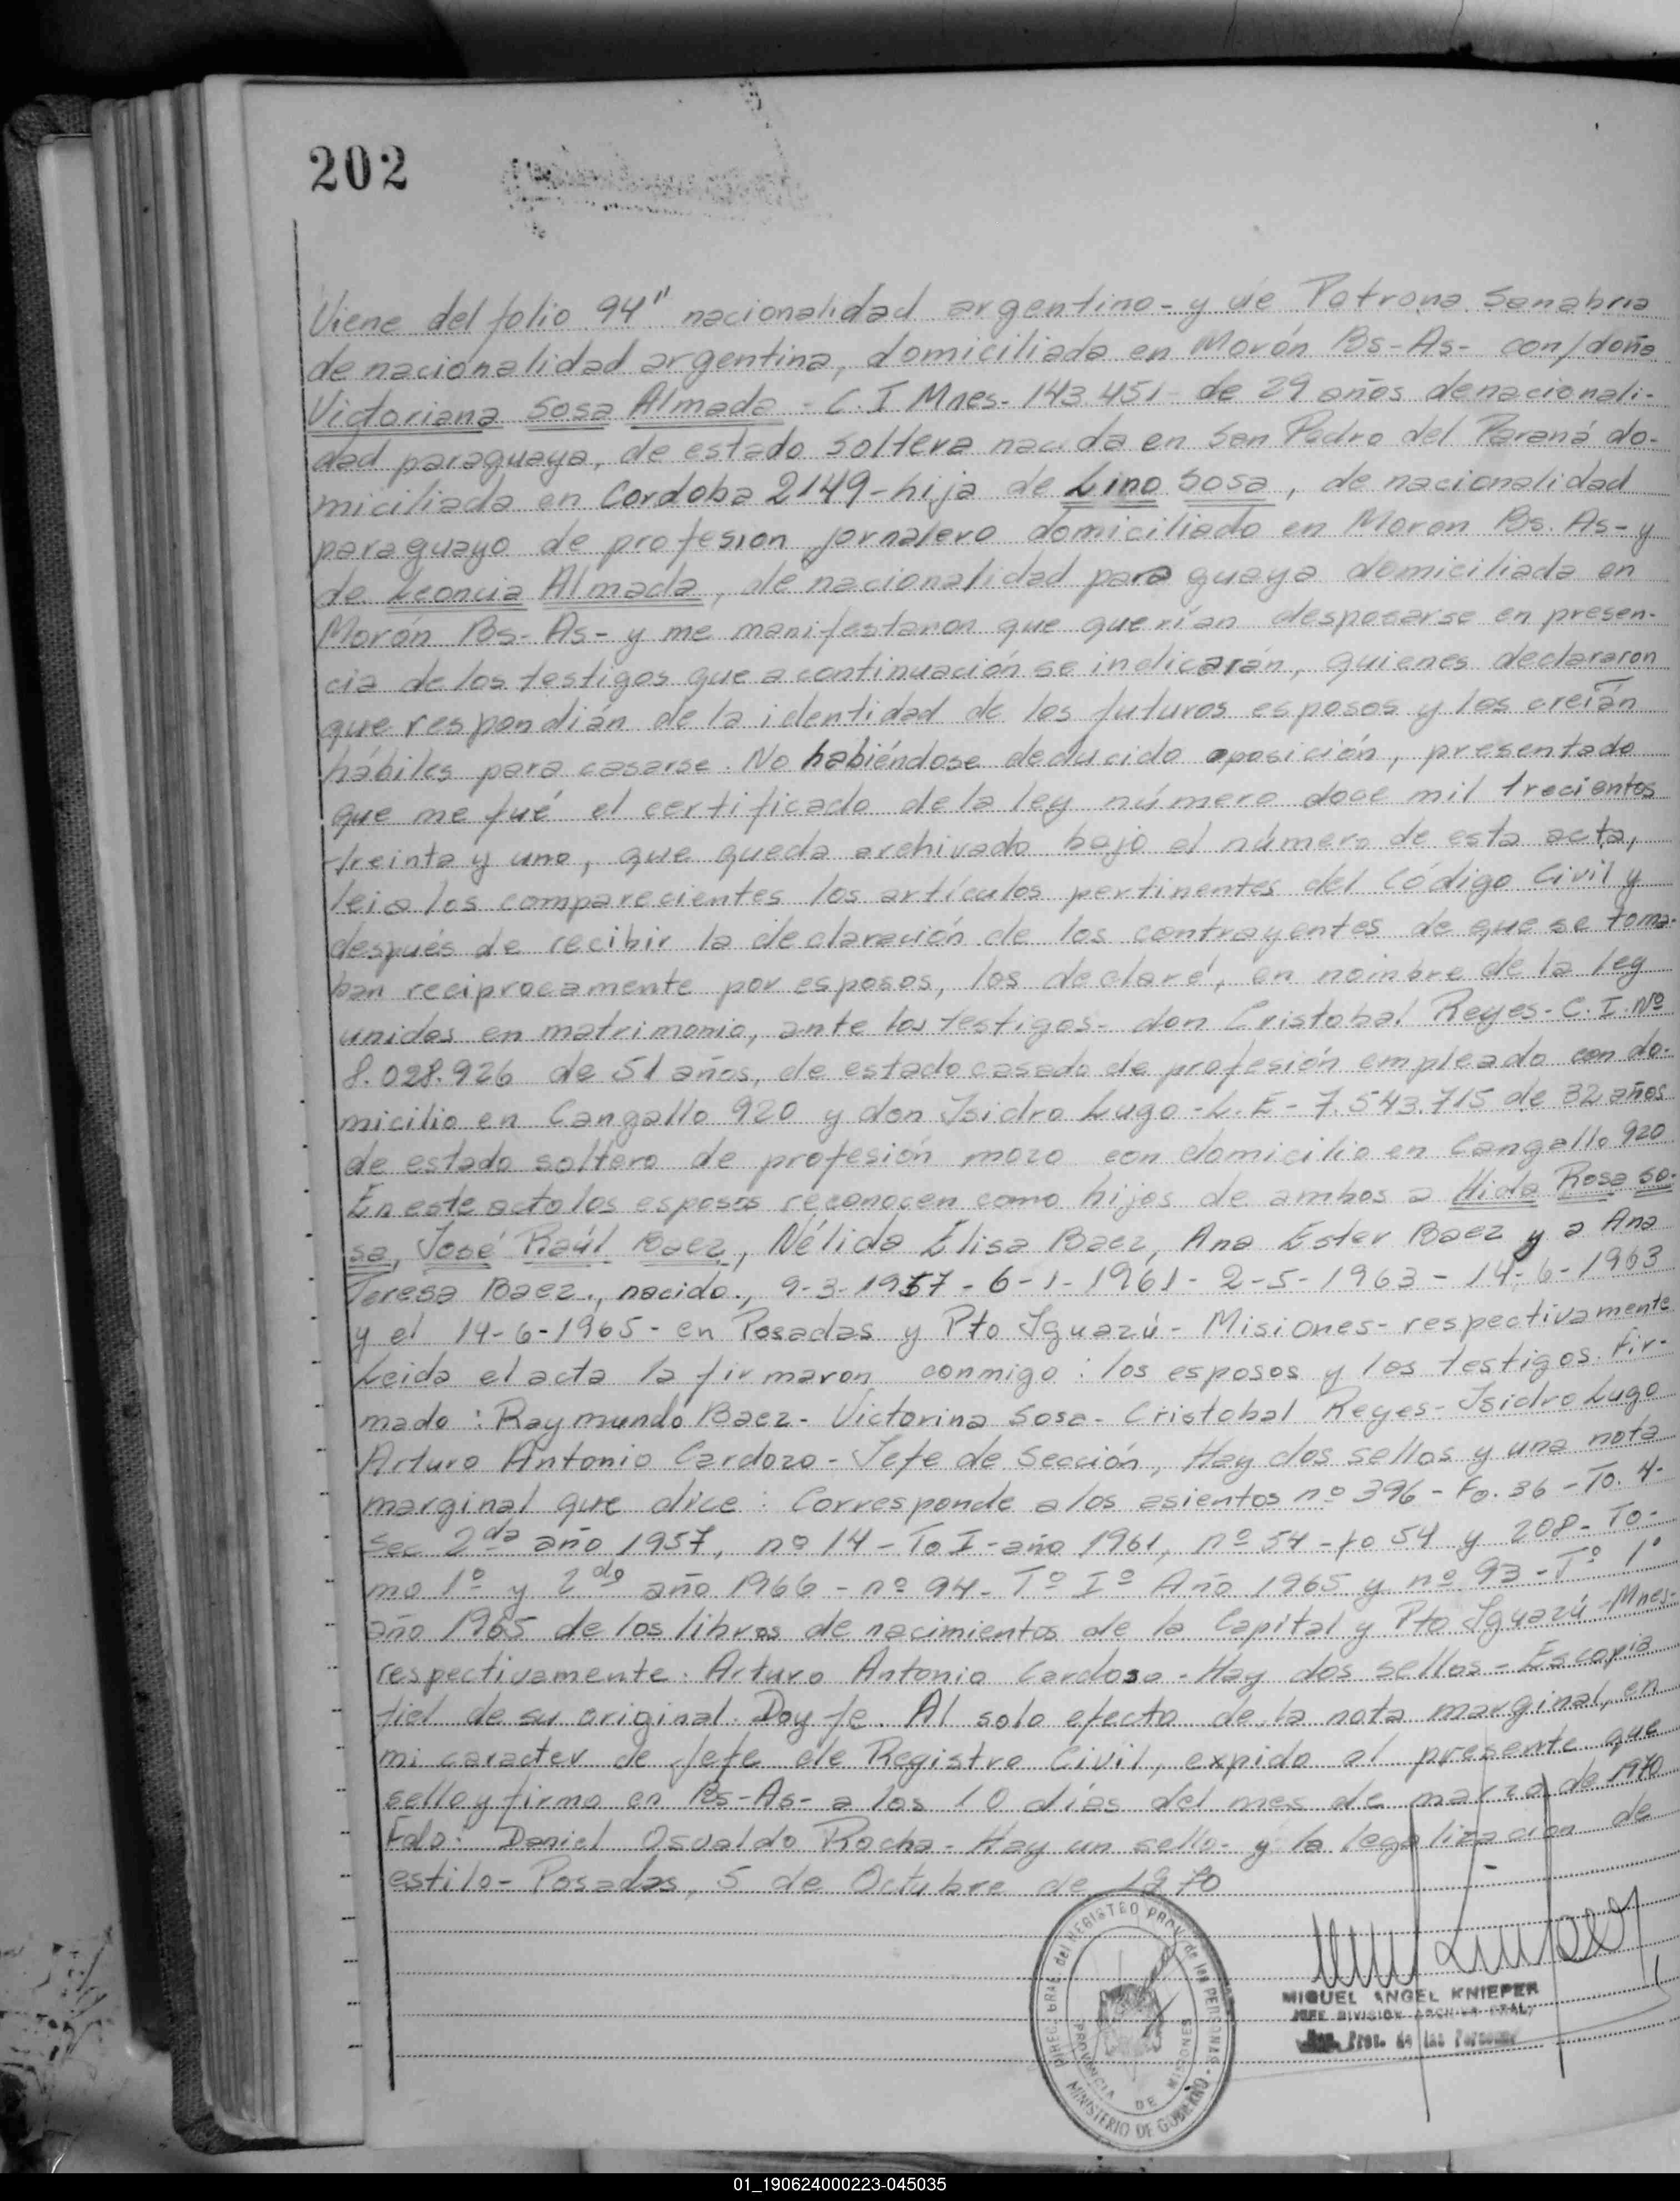 202
Viene del folio 94" nacionalidad argentino - y de Petrona Sanabria
de nacionalidad argentina, domiciliada en Morón Bs-As- con/doña
Victoriana Sosa Almada - C. I Mnes- 143.451- de 29 años de nacionali-
dad paraguaya, de estado soltera nacida en San Pedro del Paraná do-
miciliada en Cordoba 2149 - hija de Lino Sosa, de nacionalidad
paraguayo de profesion jornalero domiciliado en Moron Bs. As - y
de Leoncia Almada, de nacionalidad paraguaya domiciliada en
Morón Bs- As - y me manifestaron que querían desposarse en presen-
cia de los testigos que a continuación se indicarán, quienes declararon
que respondián de la identidad de los futuros esposos y los creían
hábiles para casarse. No habiéndose deducido oposición, presentado
que me fué el certificado de la ley número doce mil trecientos
treinta y uno, que queda archivado bajo el número de esta acta,
lei a los comparecientes los artículos pertinentes del Código Civil y
después de recibir la declaración de los contrayentes de que se toma-
ban reciprocamente por esposos, los declaré, en nombre de la ley
unidos en matrimonio, ante los testigos- don Cristobal Reyes - C. I. Nº
8.028.926 de 51 años, de estado casado de profesión empleado con do-
micilio en Cangallo 920 y don Isidro Lugo - L. E - 7.543.715 de 32 años
de estado soltero de profesión mozo con domicilio en Cangallo 920
En este acto los esposos reconocen como hijos de ambos a Hida Rosa So-
sa, José Raúl Baez, Nélida Elisa Baez, Ana Ester Baez y a Ana
Teresa Baez., nacido., 9-3-1957 - 6-1-1961 - 2-5-1963 - 14-6-1963
y el 14-6-1965 - en Posadas y Pto Iguazú - Misiones - respectivamente
Leida el acta la firmaron conmigo : los esposos y los testigos. Fir-
mado : Raymundo Baez - Victorina Sosa - Cristobal Reyes - Isidro Lugo
Arturo Antonio Cardozo - Jefe de Sección, Hay dos sellos y una nota
marginal que dice : Corresponde a los asientos nº 396 - Fo. 36 - To. 4-
Sec 2da año 1957, nº 14 - To I - año 1961, nº 54 - fo 54 y 208 - To-
mo 1º y 2do año 1966 - nº 94 - Tº Iº Año 1965 y nº 93 - Tº 1º
año 1965 de los libros de nacimientos de la Capital y Pto Iguazú - Mnes-
respectivamente. Arturo Antonio Cardoso - Hay dos sellos - Es copia
fiel de su original. Doy fe. Al solo efecto de la nota marginal, en
mi caracter de Jefe de Registro Civil, expido el presente que
sello y firmo en Bs-As- a los 10 días del mes de marzo de 1970
Fdo: Daniel Osvaldo Rocha - Hay un sello - y la legalización de
estilo - Posadas, 5 de Octubre de 1970
DIREC. GRAL del REGISTRO PROV. de las PERSONAS
PROVINCIA DE MISIONES
MINISTERIO DE GOBIERNO
MIGUEL ANGEL KNIEPER
JEFE DIVISION ARCHIVO GRAL.
Prov. de las Personas
01_190624000223-045035